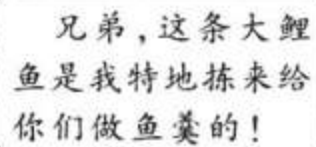 兄弟，这条大鲤
鱼是我特地拣来给
你们做鱼羹的！